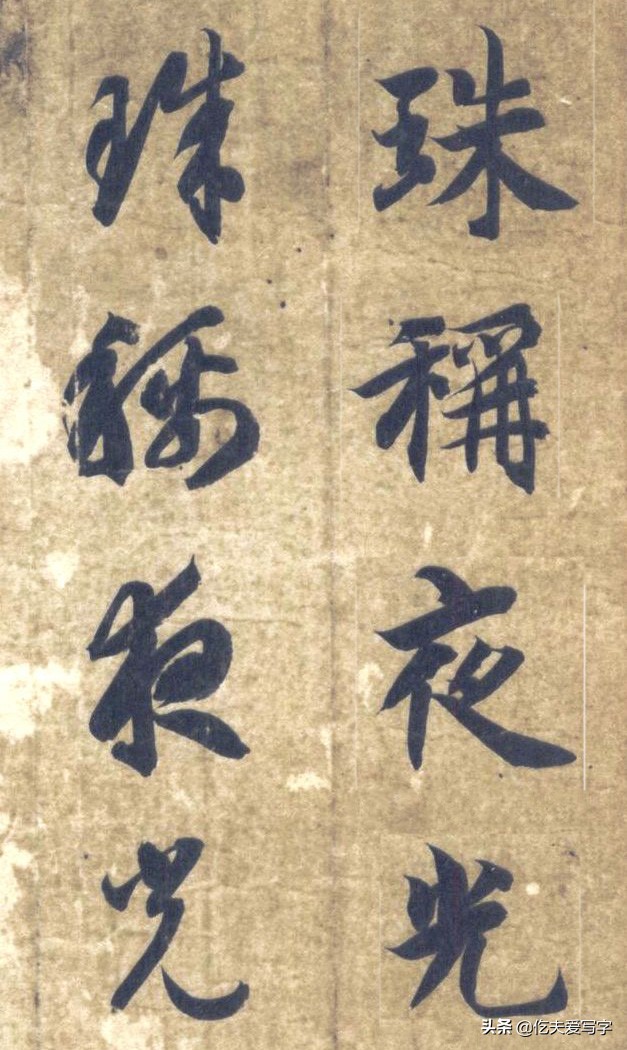 珠稱夜光
珠稱夜光
头条 @仡夫爱写字